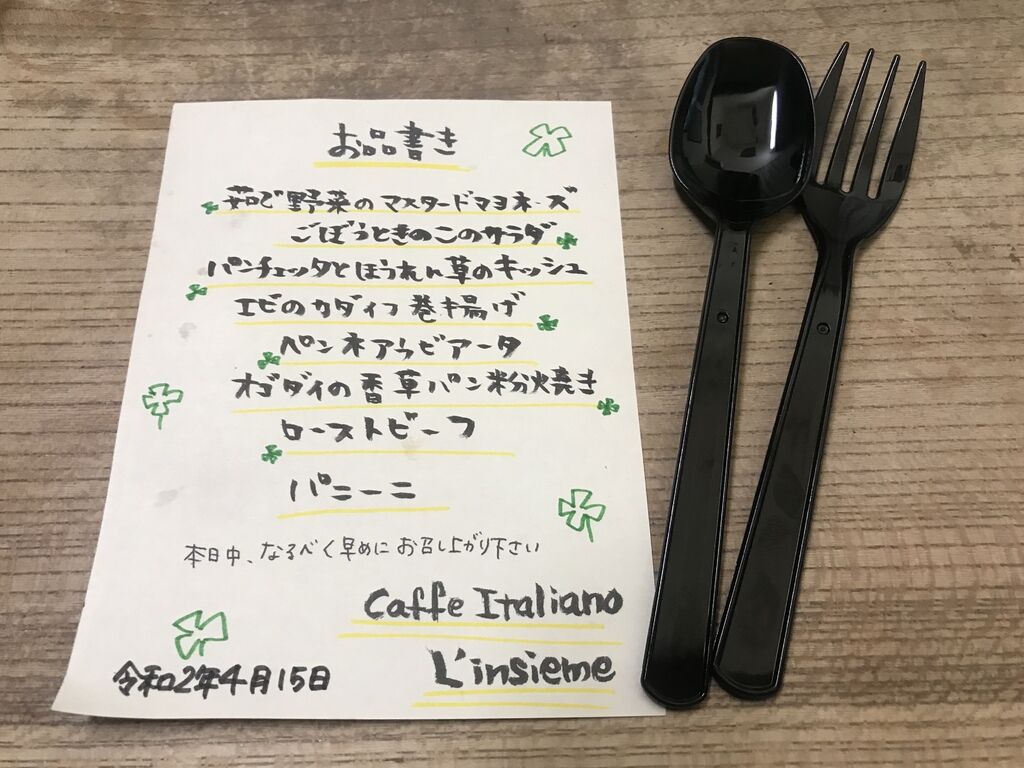 お品書き
茹で野菜のマスタードマヨネーズ
ごぼうときのこのサラダ
パンチェッタとほうれん草のキッシュ
エビのカダイフ巻き揚げ
ペンネアラビアータ
オゴダイの香草パン粉焼き
ローストビーフ
パニーニ
本日中、なるべく早めにお召し上がり下さい
Caffe Italiano
L'insieme
令和2年4月15日